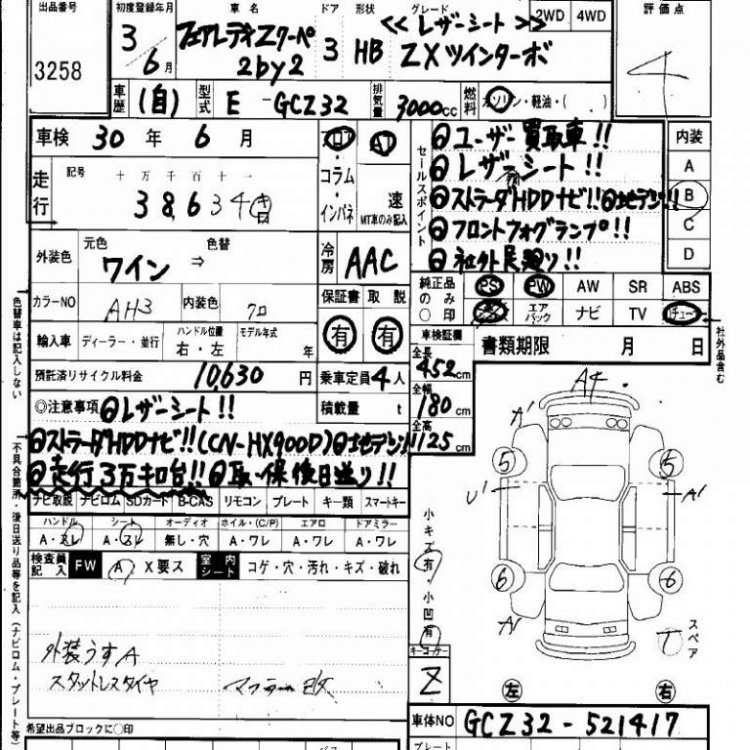 出品番号 初度登録年月 車名 ドア 形状 グレード 評価点
3258 3年6月 フェアレディZクーペ 2by2 3 HB <<レザーシート>> ZXツインターボ 2WD 4WD 4
車歴 (自) 型式 E-GCZ32 排気量 3000cc 燃料 ガソリン・軽油・( )
車検 30年 6月
走行 記号 十 万 千 百 十 一
38,634
ロ・コラム・インパネ
AT 速 MT車のみ記入
セールスポイント
ユーザー買取車!!
レザーシート!!
ストラーダHDDナビ!! 地デジ!!
フロントフォグランプ!!
内装
A
B
C
D
外装色 元色 ワイン ⇒ 色替
カラーNO AH3 内装色 クロ
冷房 AAC
保証書 取説
有 有
純正品のみ〇印
PS PW AW SR ABS
エアバック ナビ TV
輸入車 ディーラー・並行 ハンドル位置 右・左 モデル年式 年
車検証欄
全長 452cm
全幅 180cm
全高 125cm
書類期限 月 日
預託済リサイクル料金 10,630円 乗車定員 4人
積載量 t
◎注意事項 レザーシート!!
ストラーダHDDナビ!!(CN-HX900D) 地デジ!!
走行3万キロ台!! 取・保後日送り!!
ナビ取説 ナビロム SDカード B-CAS リモコン プレート キー類 スマートキー
ハンドル シート オーディオ ホイル・(C/P) エアロ ドアミラー
A・スレ A・スレ 無し・穴 A・ワレ A・ワレ A・ワレ
検査員記入 FW A X要ス 室内シート コゲ・穴・汚れ・キズ・破れ
外装うすA
スタットレスタイヤ マフラー改
希望出品ブロックに〇印
色替車は記入しない
不具合箇所・後日送り品等を記入(ナビロム・プレート等)
社外品含む
A4
A'
5 5
U' A'
6 6
A'
小キズ有・小凹有
スペア
T
キーコーナー
Z
左 右
車体NO GCZ32-521417
プレート